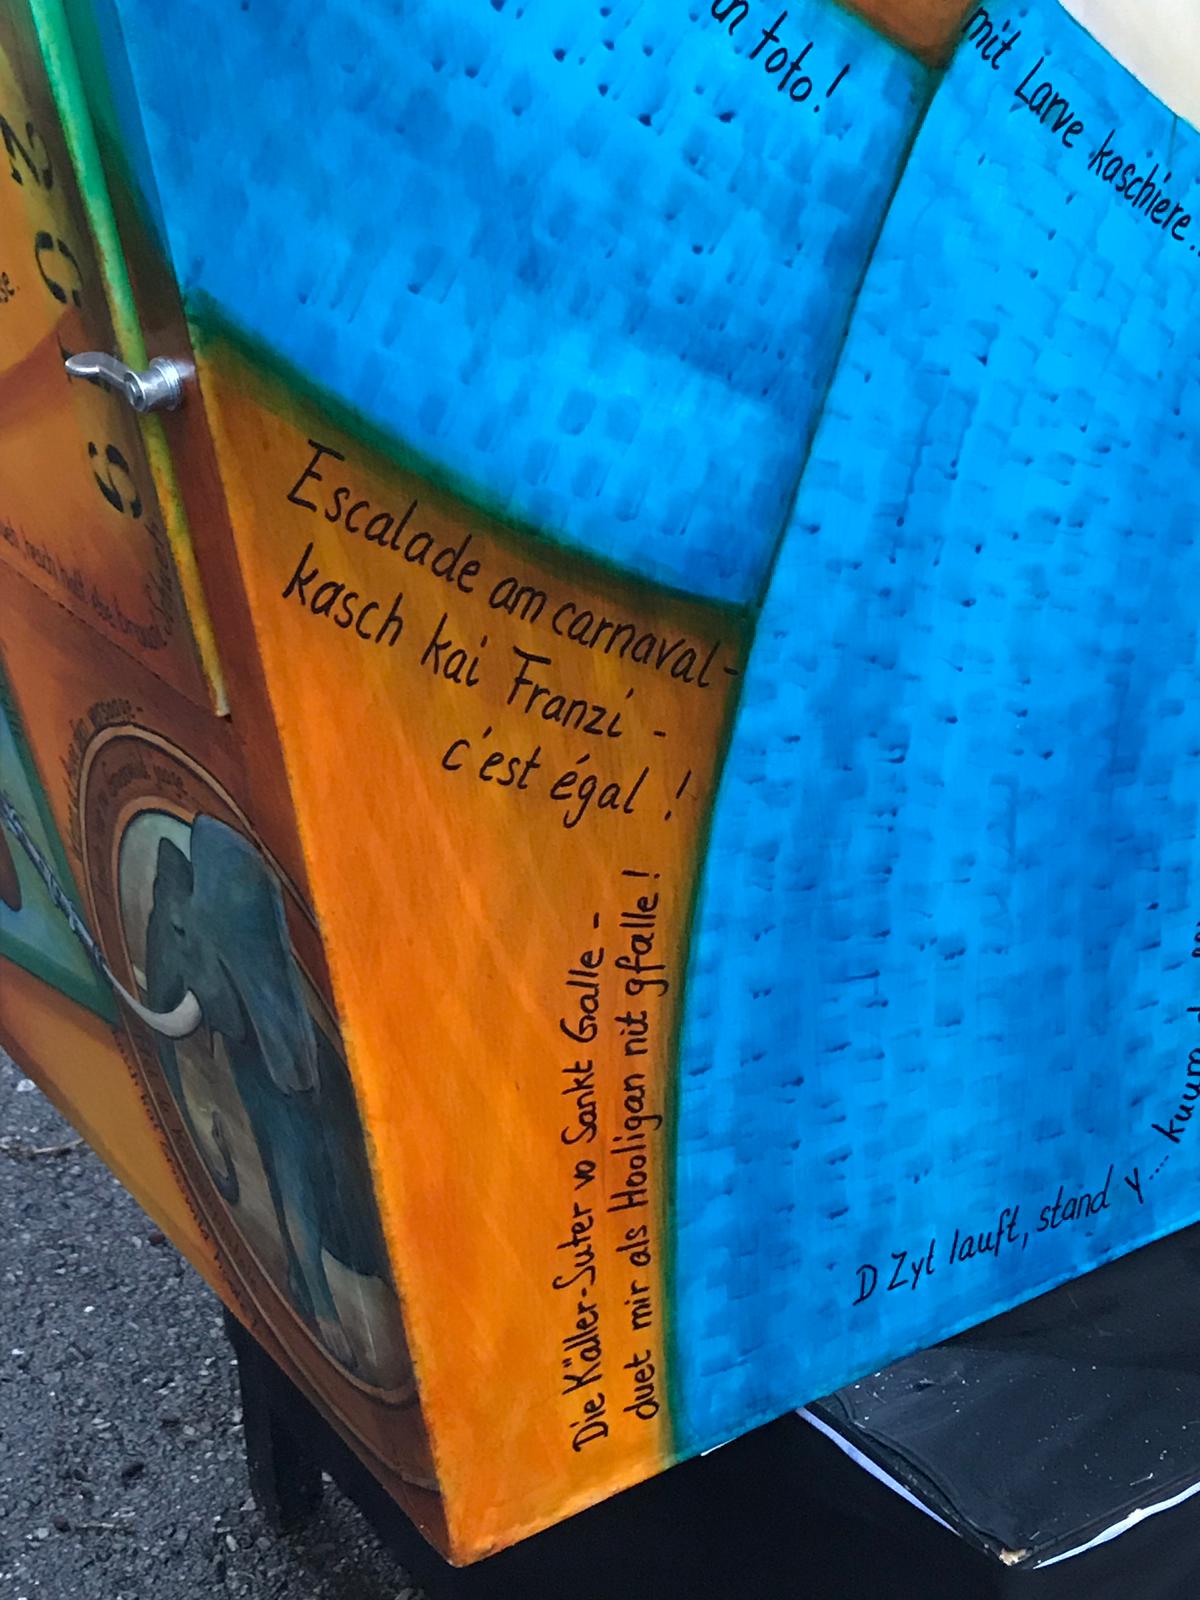 in toto!
mit Larve kaschiere..
Escalade am carnaval-
kasch kai Franzi -
c'est égal !
Die Käller-Suter vo Sankt Galle -
duet mir als Hooligan nit gfalle!
D Zyt lauft, stand y.... kuum